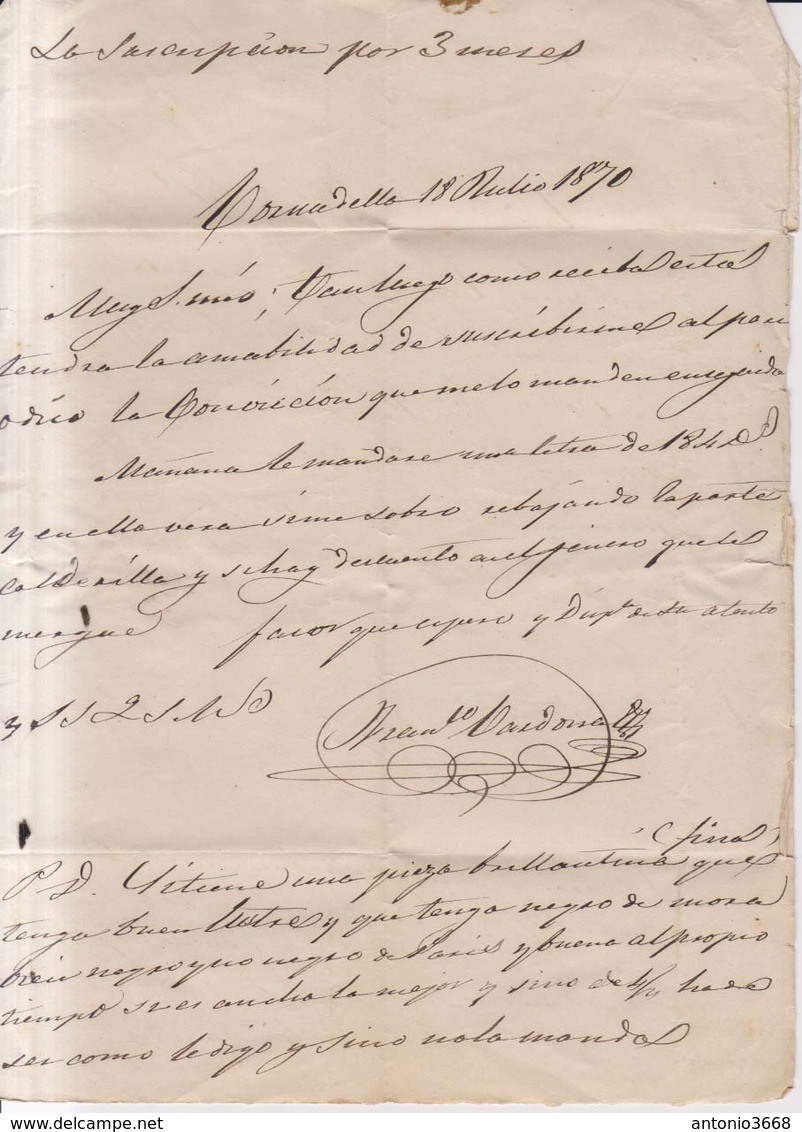 La Suscripcion por 3 meses
Cornudella 18 Julio 1870
Muy S. mio; Tan luego como reciba esta
tendra la amabilidad de suscribirme al peri
odico la Conviccion que me lo manden enseguida
Mañana le mandare una letra de 184
y en ella vera si me sobro rebajando la parte
calderilla y si hay descuento en el genero que le
mergue favor que espero y Dispª de su atento
y S S Q S M B
Franco Cardona
P D. Si tiene una pieza brillantina (fina)
que
tenga buen lustre y que tenga negro de mora
bien negro y no negro de Paris y buena al propio
tiempo si es ancha la mejor y sino de 4/4 ha de
ser como le digo y sino no la manda
antonio3668